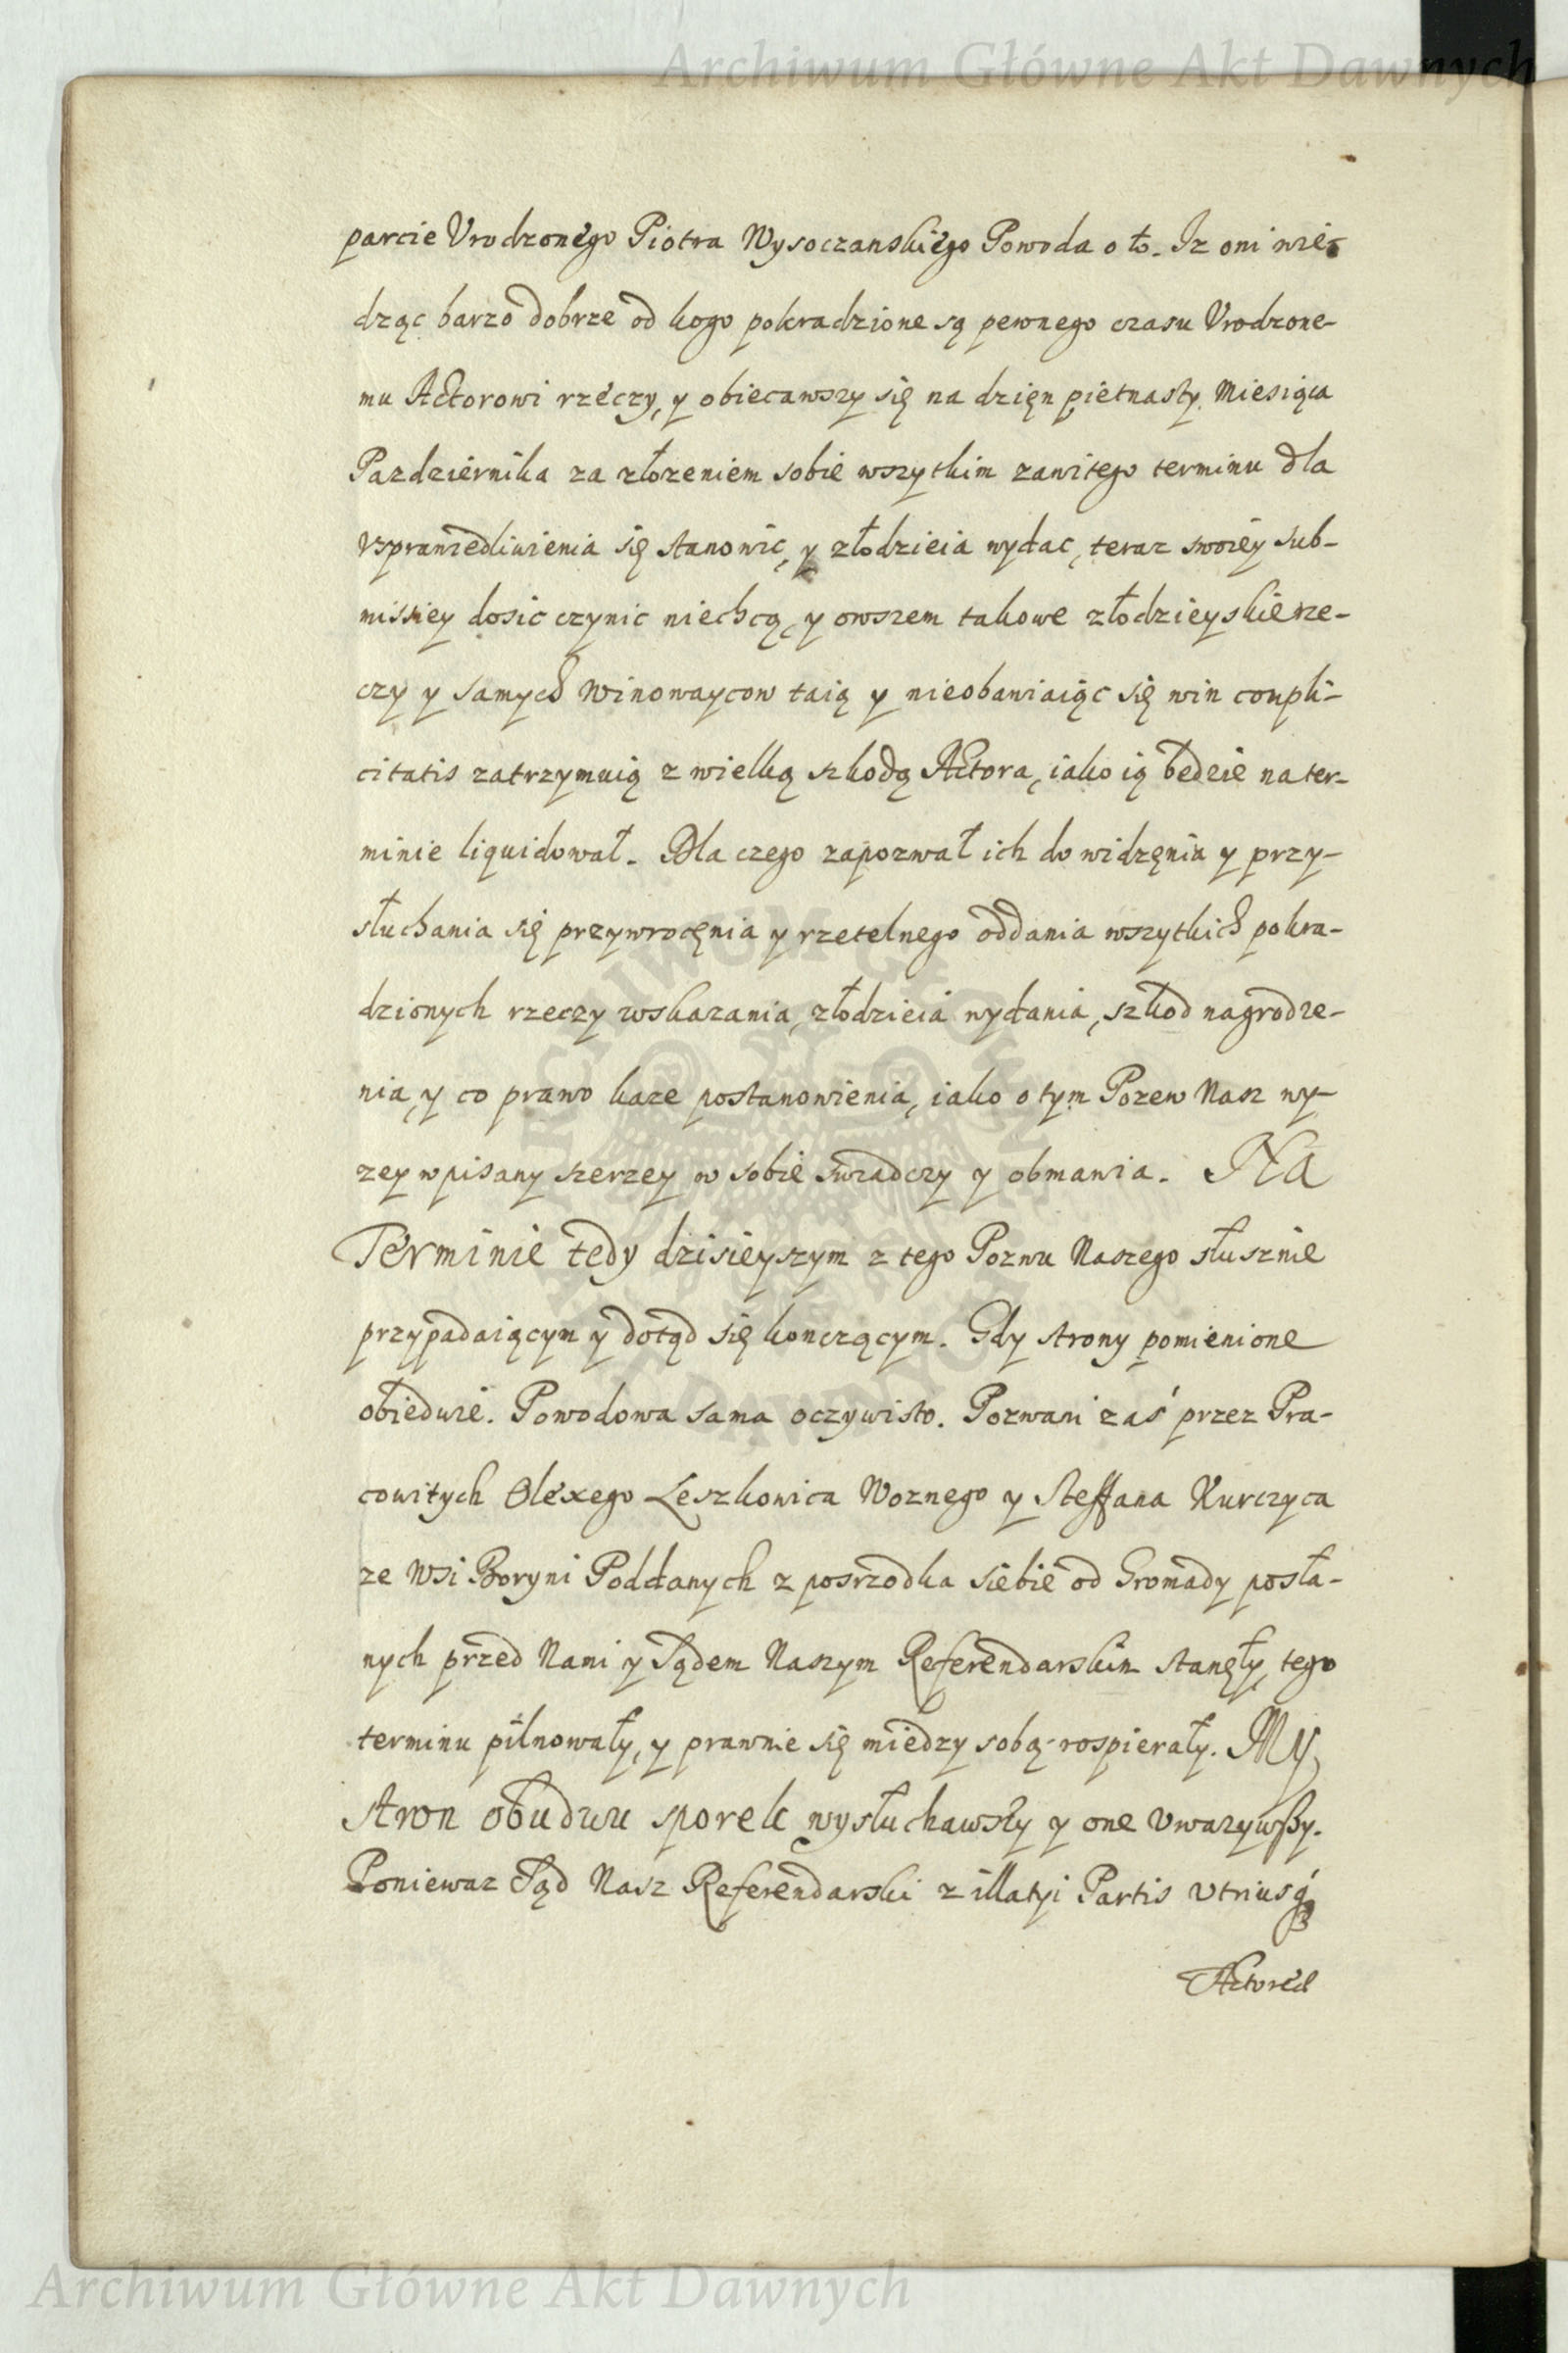 Archiwum Główne Akt Dawnych
parcie Vrodzonego Piotra Wysoczanskiego Powoda o to. Iz oni wie-
dząc barzo dobrze od kogo pokradzione są pewnego czasu Vrodzone-
mu Actorowi rzeczy, y obiecawszy się na dzięn piętnasty Miesiąca
Pazdziernika za złozeniem sobie wszytkim zawitego terminu dla
vsprawiedliwienia się stanowic, y złodzieia wydac, teraz swoiey sub-
missiey dosic czynic niechcą, y owszem takowe złodzieyskie rze-
czy y samych winowaycow taią y nieobawiaiąc się win coupli-
citatis zatrzymuią z wielką szkodą Actora, iako ią będzie na ter-
minie liquidował. Dla czego zapozwał ich do widzęnia y przy-
słuchania się przywrocęnia y rzetelnego oddania wszytkich pokra-
dzionych rzeczy wskazania, złodzieia wydania, szkod nagrodze-
nia, y co prawo kaze postanowienia, iako o tym Pozew Nasz wy-
zey wpisany szerzey w sobie swiadczy y obmawia. Na
Terminie tedy dzisieyszym z tego Pozwu Naszego słusznie
przypadaiącym y dotąd się konczącym. Gdy strony pomienione
obiedwie. Powodowa sama oczywisto. Pozwani zaś przez Pra-
cowitych Olexego Leszkowica Woznego y Steffana Kurczyca
ze Wsi Boryni Poddanych z posrzodka siebie od Gromady posła-
nych przed Nami y Sądem Naszym Referendarskim stanęły, tego
terminu pilnowały, y prawnie się miedzy sobą rospierały. My
stron obudwu sporek wysłuchawszy y one vwazywszy.
Poniewaz Sąd Nasz Referendarski z illatyi Partis vtriusq3
Archiwum Główne Akt Dawnych